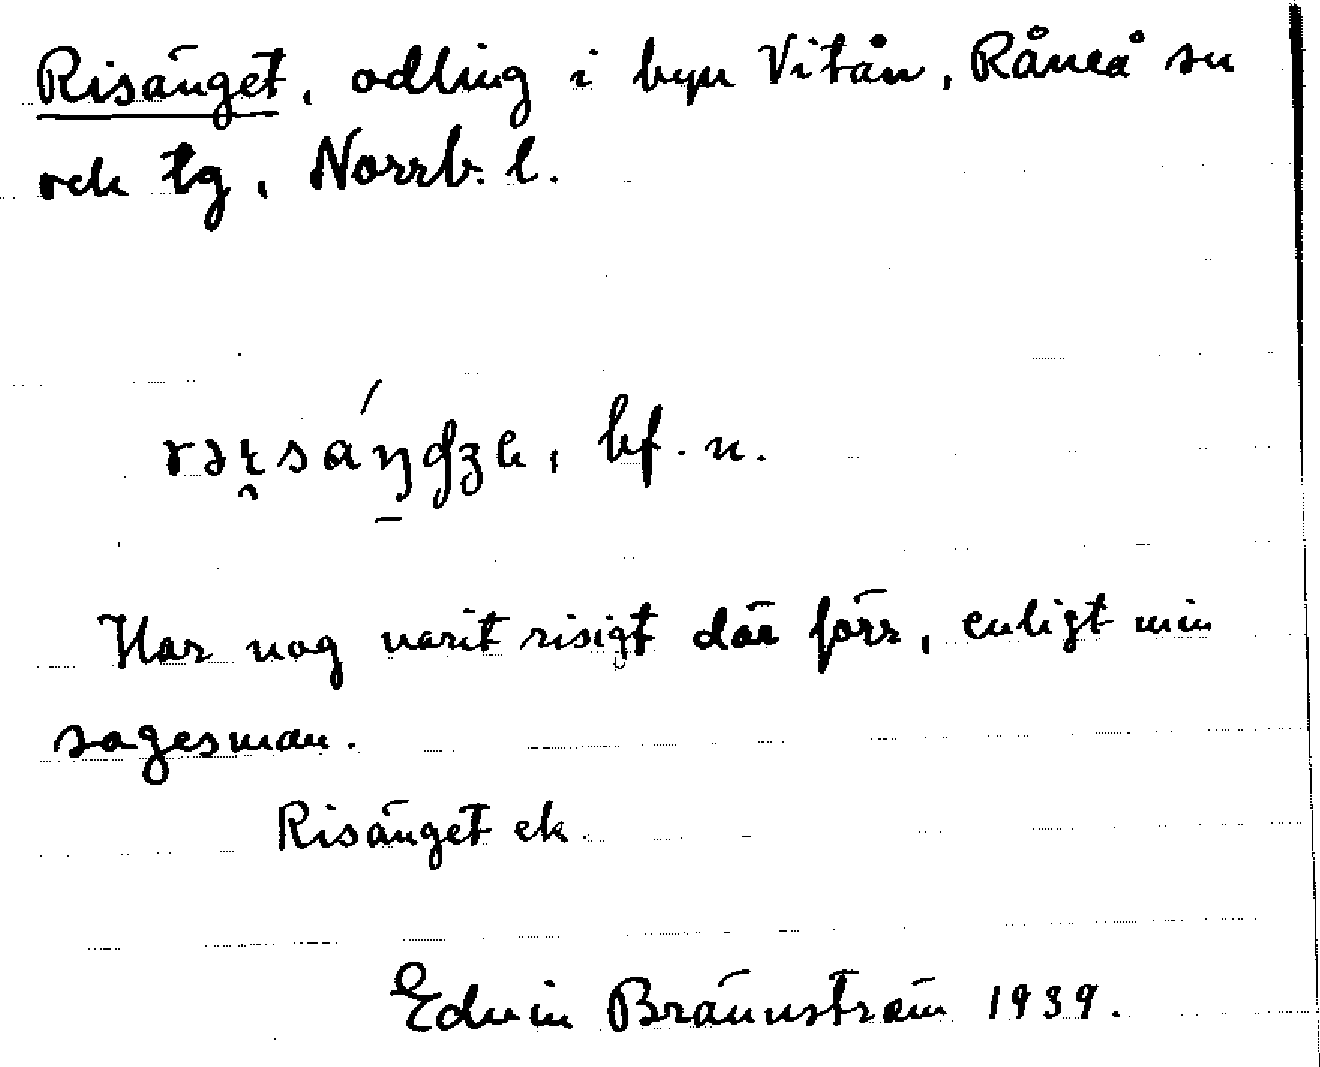 Risänget, odling i byn Vitån, Råneå sn
och tg, Norrb. l.
bf. n.
Har nog varit risigt där förr, enligt min
sagesman.
Risänget ek
Edvin Brännström 1939.